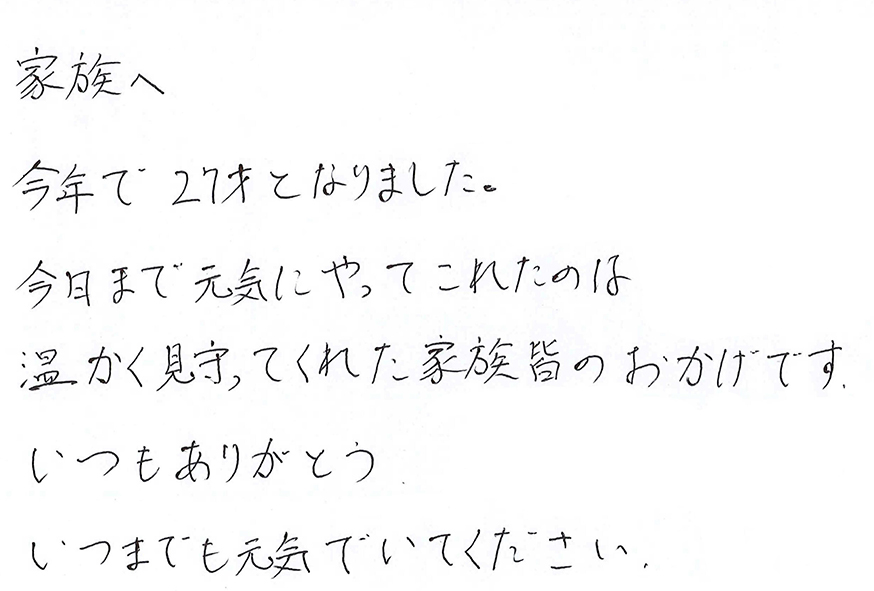 家族へ
今年で27才となりました。
今日まで元気にやってこれたのは
温かく見守ってくれた家族皆のおかげです.
いつもありがとう.
いつまでも元気でいてください.